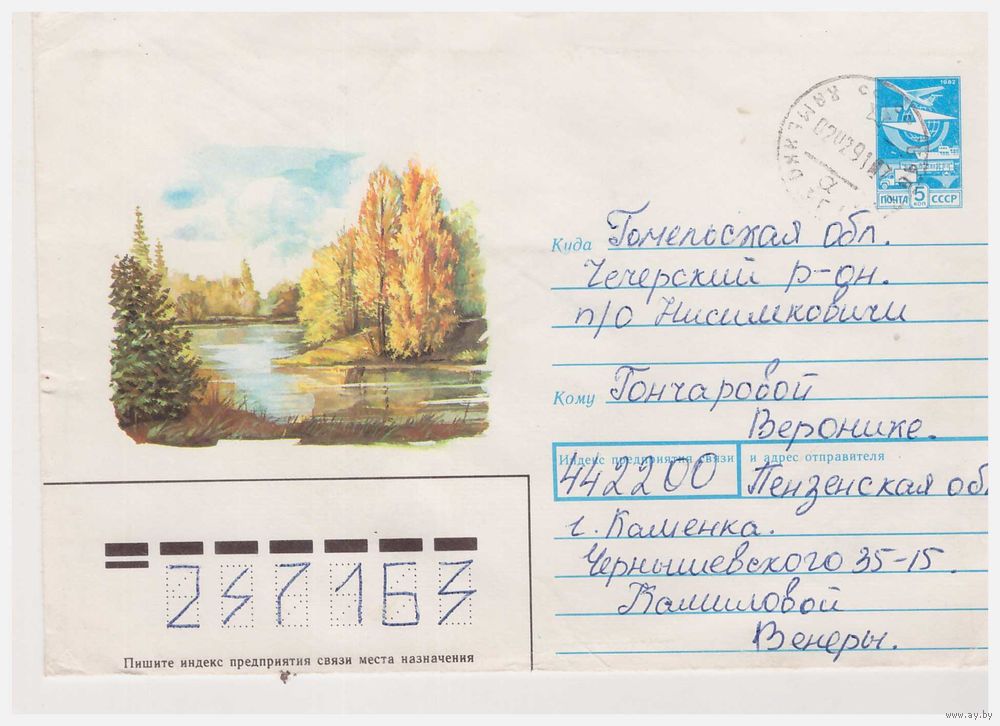 1982
ПОЧТА 5 КОП СССР
020291
Куда Гомельская обл.
Чечерский р-он.
п/о Нисимковичи
Кому Гончаровой
Веронике.
Индекс предприятия связи и адрес отправителя
442200 Пензенская об
г. Каменка.
Чернышевского 35-15.
Камиловой
Венеры.
247163
Пишите индекс предприятия связи места назначения
www.ay.by